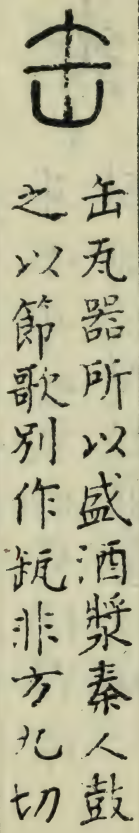 缶
缶瓦器所以盛酒漿秦人鼓
之以節歌別作缻非方九切